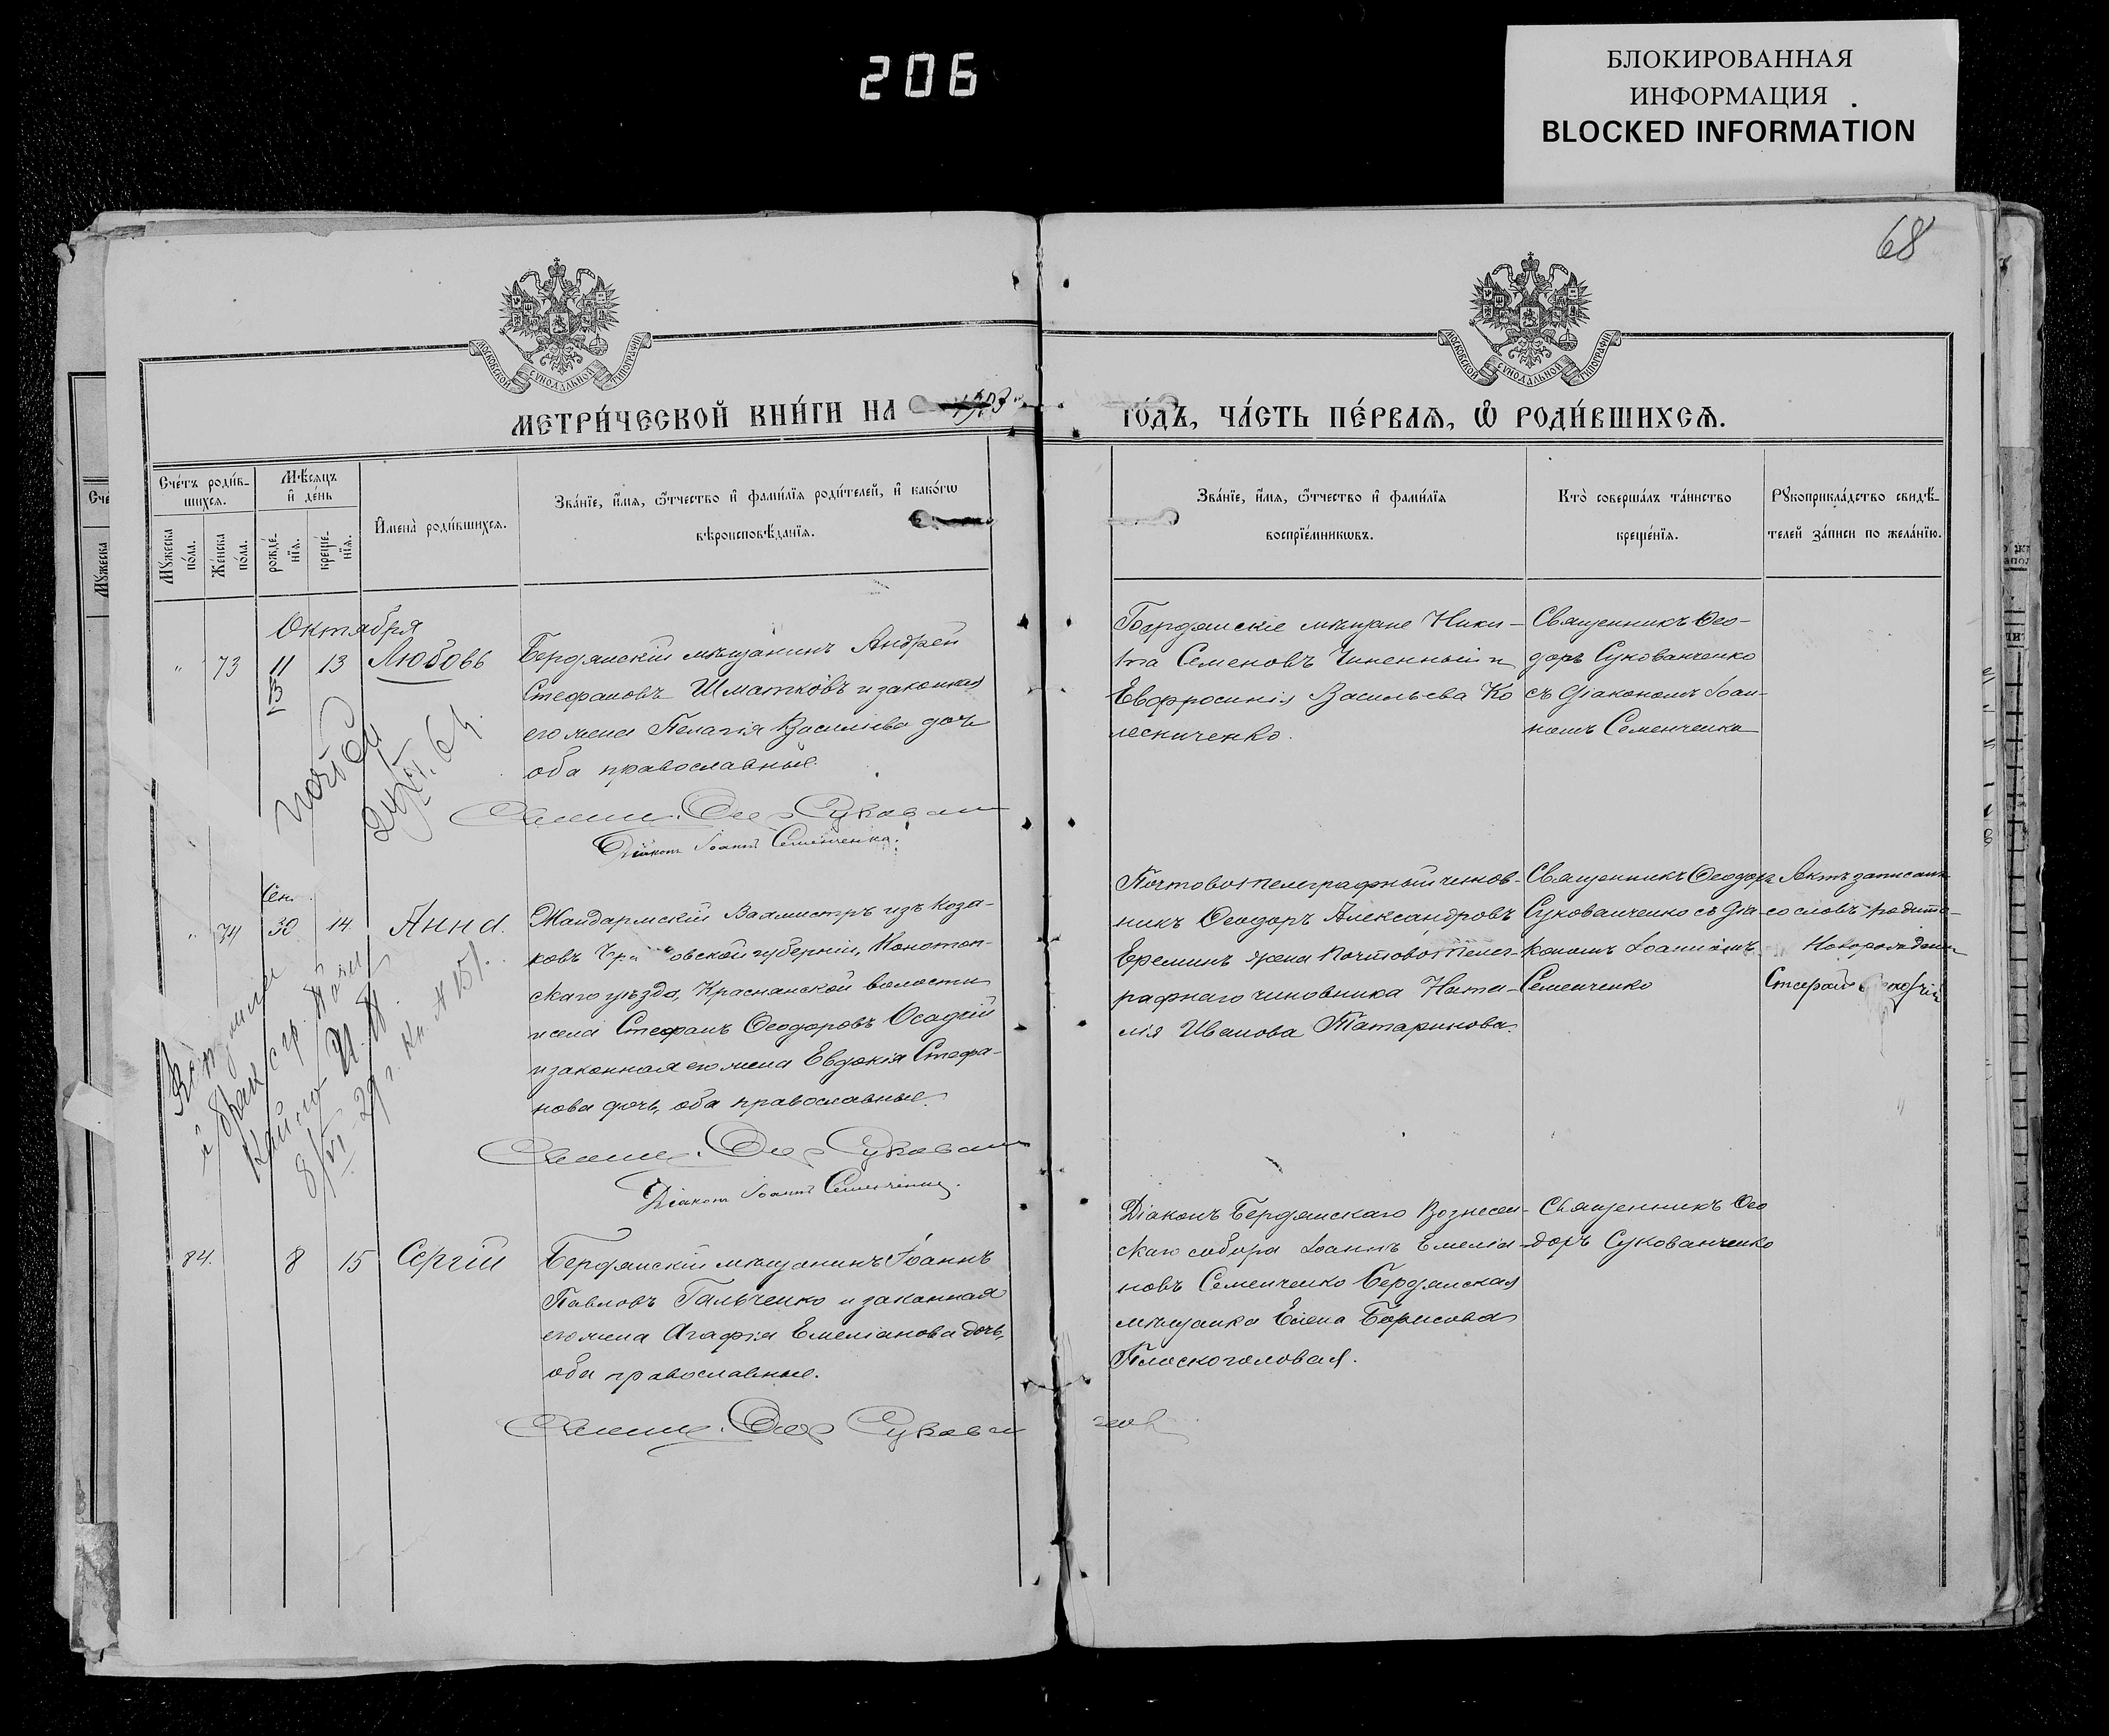 206
БЛОКИРОВАННАЯ
ИНФОРМАЦИЯ
BLOCKED INFORMATION
68
МОСКОВСКОЙ СѴНОДАЛЬНОЙ ТИПОГРАФІИ
МОСКОВСКОЙ СѴНОДАЛЬНОЙ ТИПОГРАФІИ
МЕТРИ́ЧЕСКОЙ КНИ́ГИ НА
ГО́ДЪ, ЧА́СТЬ ПЕ́РВАѦ, Ѡ҆ РОДИ́ВШИХСѦ.
Сче́тъ роди́в-
шихсѧ.
Мѣ́сѧцъ
и҆ де́нь
Мꙋ́жеска
по́ла.
Же́нска
по́ла.
рожде́-
нїѧ.
креще́-
нїѧ.
И҆мена̀ роди́вшихсѧ.
Зва́нїе, и҆́мѧ, ѻ҆́тчество и҆ фами́лїѧ роди́телей, и҆ како́гѡ
вѣроисповѣ́данїѧ.
Зва́нїе, и҆́мѧ, ѻ҆́тчество и҆ фами́лїѧ
воспрїе́мникѡвъ.
Кто̀ соверша́лъ та́инство
креще́нїѧ.
Рꙋкоприкла́дство свидѣ́-
телей за́писи по жела́нїю.
Октября
" 73 11 13 Любовь
Бердянскій мѣщанинъ Андрей
Стефановъ Шматковъ и законная
его жена Пелагія Васильева дочь
оба православные.
Свящ. Ѳеод. Сукован
Діаконъ Іоаннъ Семенченко.
Бердянскіе мѣщане Ники-
та Семеновъ и
Евфросинія Васильева Ко
лесниченко.
Священникъ Ѳео-
доръ Сукованченко
съ діакономъ Іоан-
номъ Семенченко
Сен.
" 74 30 14 Анна.
Жандармскій Вахмистръ изъ коза-
ковъ губерніи, Конотоп-
скаго уѣзда, Краснянской волости
и села Стефанъ Ѳеодоровъ Осадчій
и законная его жена Евдокія Стефа-
нова дочь, оба православные.
Свящ. Ѳеод Сукован
Діаконъ Іоаннъ Семенченко.
Почтовотелеграфный чинов-
никъ Ѳеодоръ Александровъ
Ереминъ жена почтовотелег-
рафнаго чиновника Ната-
лія Иванова Татаринова.
Священникъ Ѳеодоръ
Сукованченко съ діа-
кономъ Іоанномъ
Семенченко
Актъ записанъ
со словъ родите-
Стефанъ Осадчій
84. 8 15 Сергій
Бердянскій мѣщанинъ Іоаннъ
Павловъ Гальченко и законная
его жена Агафія Емеліанова дочь,
оба православные.
Свящ. Ѳеод Сукован
Діаконъ Бердянскаго Вознесен-
скаго собора Іоаннъ Емеліа-
новъ Семенченко Бердянская
мѣщанка Елена Борисова
Плоскоголовая.
Священникъ Ѳео
доръ Сукованченко